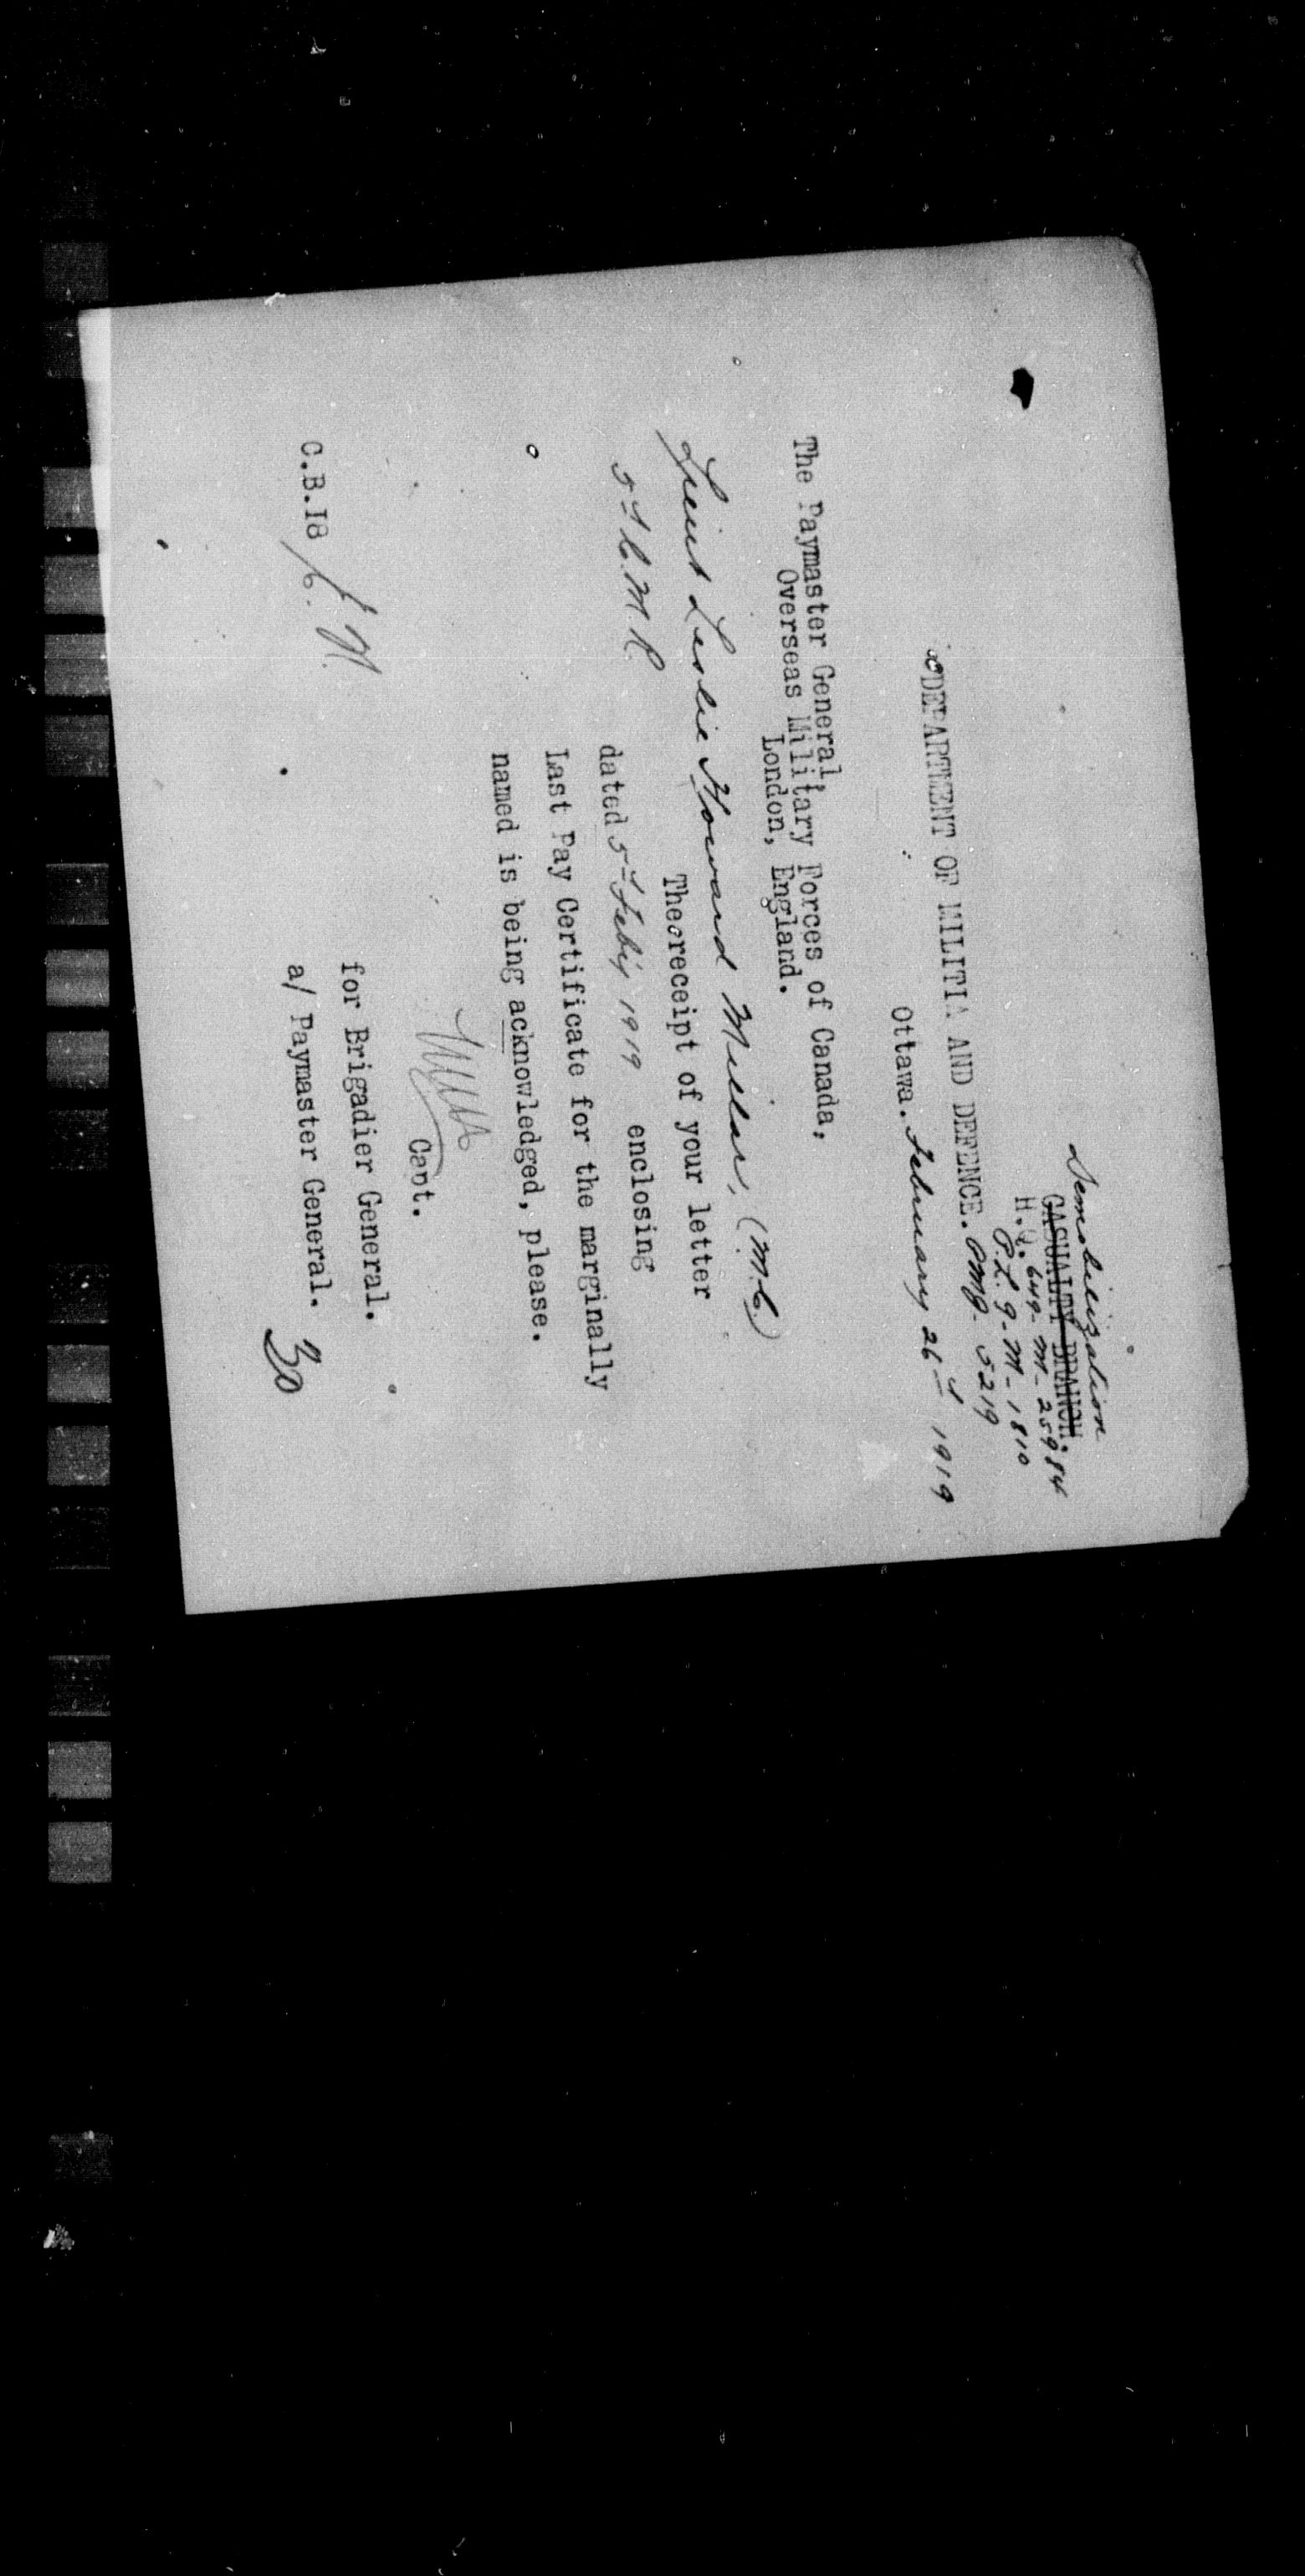 Demobilization
CASUALTY BRANCH.
H.Q. 649-M-25984
P.L. 9-M-1810
DEPARTMENT OF MILITIA AND DEFENCE. PMG. 5219
Ottawa. February 26th 1919
The Paymaster General,
Overseas Military Forces of Canada,
London, England.
Lieut Leslie Howard Millar, (M.C.)
5th C.M.R.
The receipt of your letter
dated 5th Feb'y 1919 enclosing
Last Pay Certificate for the marginally
named is being acknowledged, please.
Capt.
for Brigadier General.
a/ Paymaster General.
C.B.18